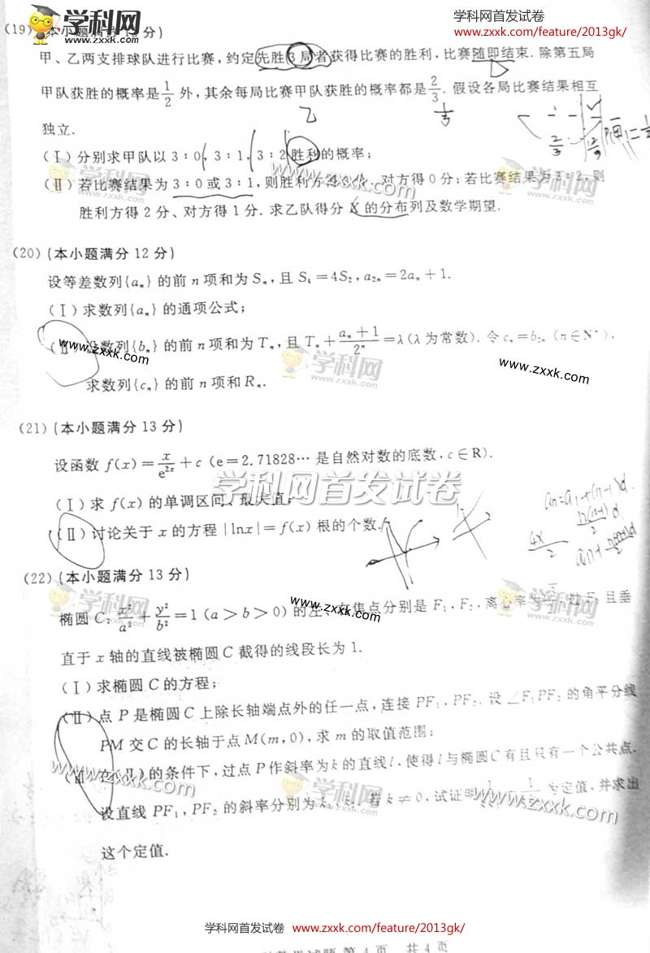 学科网首发试卷
www.zxxk.com/feature/2013gk/
学科网
www.zxxk.com
(19) 本小题满分 分)
甲、乙两支排球队进行比赛,约定先胜3局者获得比赛的胜利,比赛随即结束.除第五局
甲队获胜的概率是1/2外,其余每局比赛甲队获胜的概率都是2/3.假设各局比赛结果相互
独立.
(Ⅰ)分别求甲队以3:0,3:1,3:2胜利的概率;
(Ⅱ)若比赛结果为3:0或3:1,则胜利方得 分、对方得0分;若比赛结果为3:2,则
胜利方得2分、对方得1分.求乙队得分X的分布列及数学期望.
(20)(本小题满分12分)
设等差数列{aₙ}的前n项和为Sₙ,且S₄=4S₂,a₂ₙ=2aₙ+1.
(Ⅰ)求数列{aₙ}的通项公式;
(Ⅱ)设数列{bₙ}的前n项和为Tₙ,且Tₙ+(aₙ+1)/2ⁿ=λ(λ为常数).令cₙ=b₂ₙ (n∈N*),
www.zxxk.com
学科网
www.zxxk.com
求数列{cₙ}的前n项和Rₙ.
(21)(本小题满分13分)
设函数f(x)=x/e²ˣ+c(e=2.71828…是自然对数的底数,c∈R).
学科网首发试卷
(Ⅰ)求f(x)的单调区间、最大值;
(Ⅱ)讨论关于x的方程|lnx|=f(x)根的个数.
(22)(本小题满分13分)
学科网
www.zxxk.com
学科网
zxxk.com
椭圆C:x²/a²+y²/b²=1(a>b>0)的左、右焦点分别是F₁,F₂,离心率为 ,且垂
直于x轴的直线被椭圆C截得的线段长为1.
(Ⅰ)求椭圆C的方程;
(Ⅱ)点P是椭圆C上除长轴端点外的任一点,连接PF₁,PF₂.设∠F₁PF₂的角平分线
PM交C的长轴于点M(m,0),求m的取值范围;
( )在(Ⅱ)的条件下,过点P作斜率为k的直线l,使得l与椭圆C有且只有一个公共点.
www.zxxk.com
学科网
www.zxxk.com
设直线PF₁,PF₂的斜率分别为 若k≠0,试证明 为定值,并求出
这个定值.
学科网首发试卷
www.zxxk.com/feature/2013gk/
试题 第4页 共4页